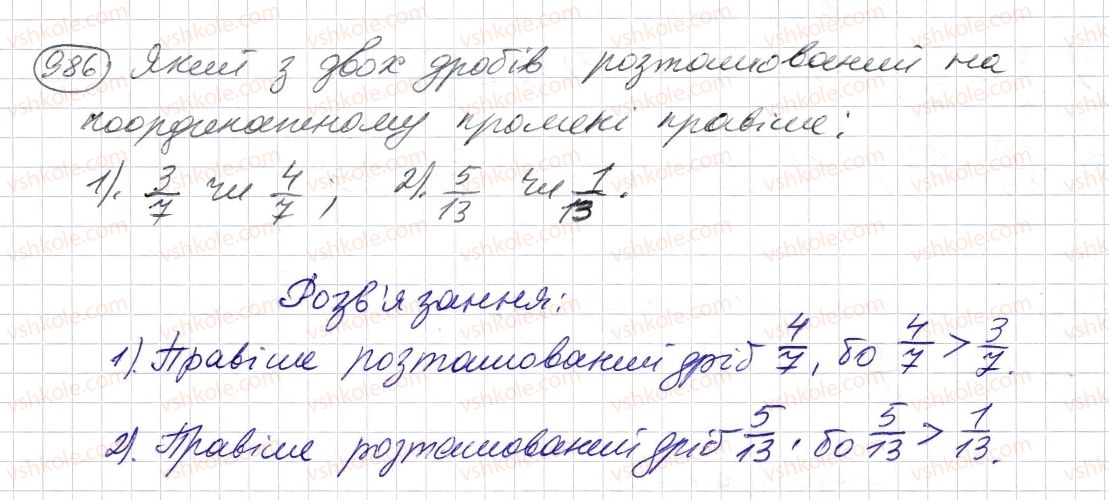 986. Який з двох дробів розташований на
координатному промені правіше:
1). 3/7 чи 4/7; 2). 5/13 чи 1/13.
Розв'язання:
1). Правіше розташований дріб 4/7, бо 4/7 > 3/7.
2). Правіше розташований дріб 5/13, бо 5/13 > 1/13.
vshkole.com